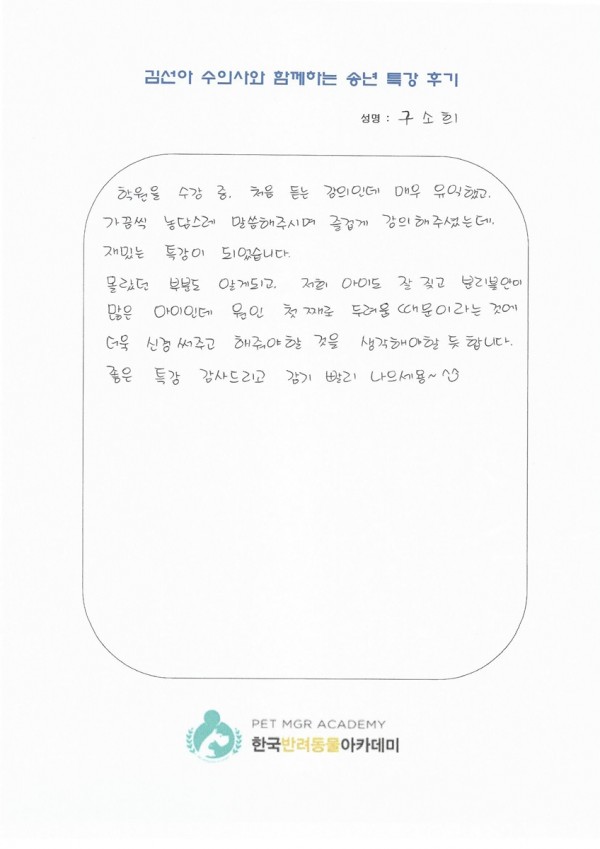 김선아 수의사와 함께하는 송년 특강 후기
성명 : 구소희
학원을 수강 중, 처음 듣는 강의인데 매우 유익했고,
가끔씩 농담스레 말씀해주시며 즐겁게 강의해주셨는데,
재밌는 특강이 되었습니다.
몰랐던 부분도 알게되고, 저희 아이도 잘 짖고 분리불안이
많은 아이인데 원인 첫째로 두려움 때문이라는 것에
더욱 신경써주고 해줘야할 것을 생각해야할 듯 합니다.
좋은 특강 감사드리고 감기 빨리 나으세용~
PET MGR ACADEMY
한국반려동물아카데미